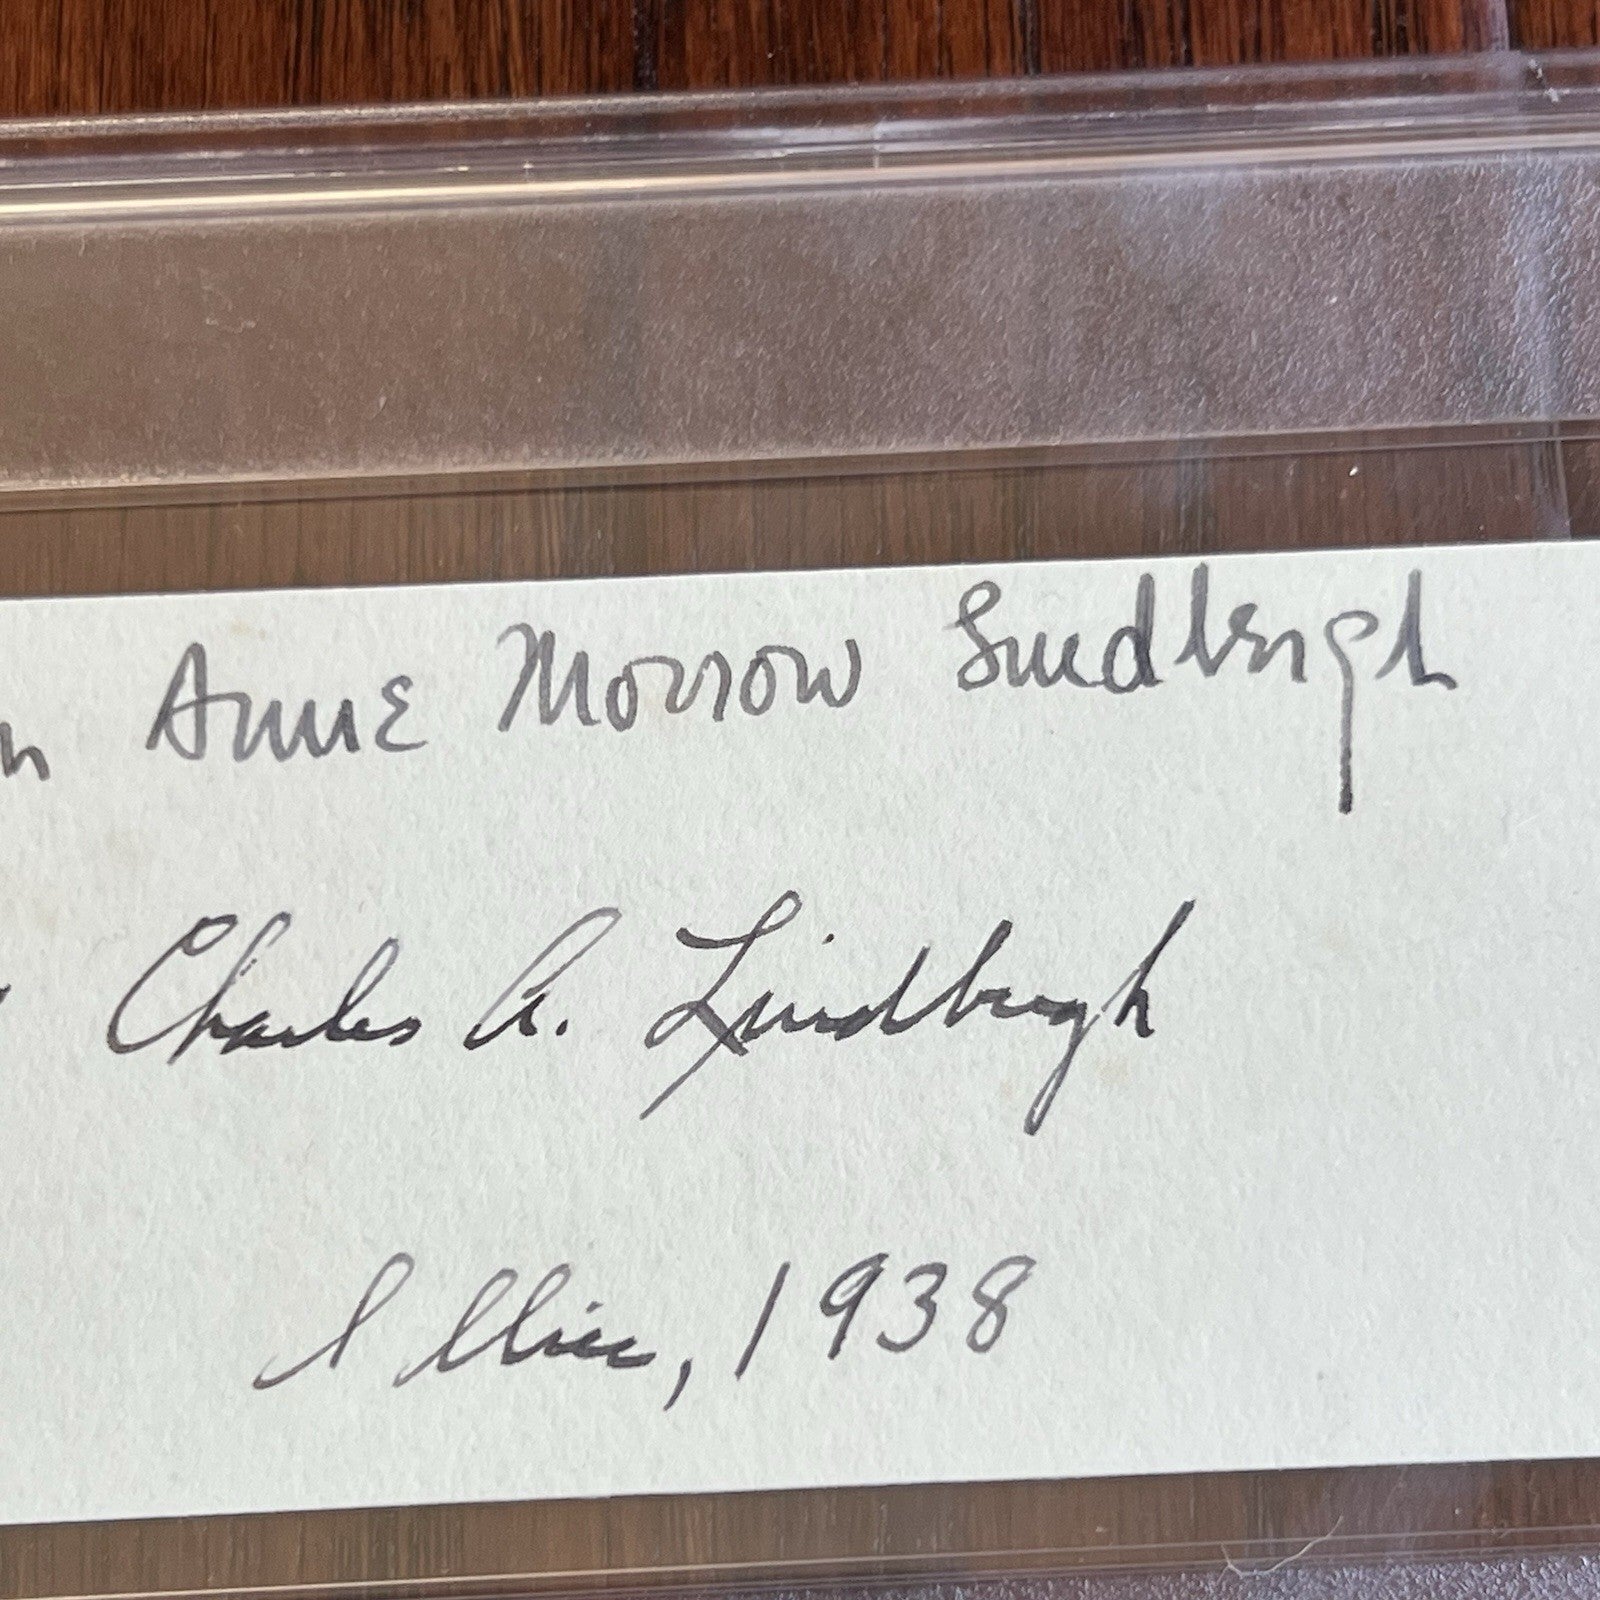 Anne Morrow Lindbergh
Charles A. Lindbergh
Illiec, 1938